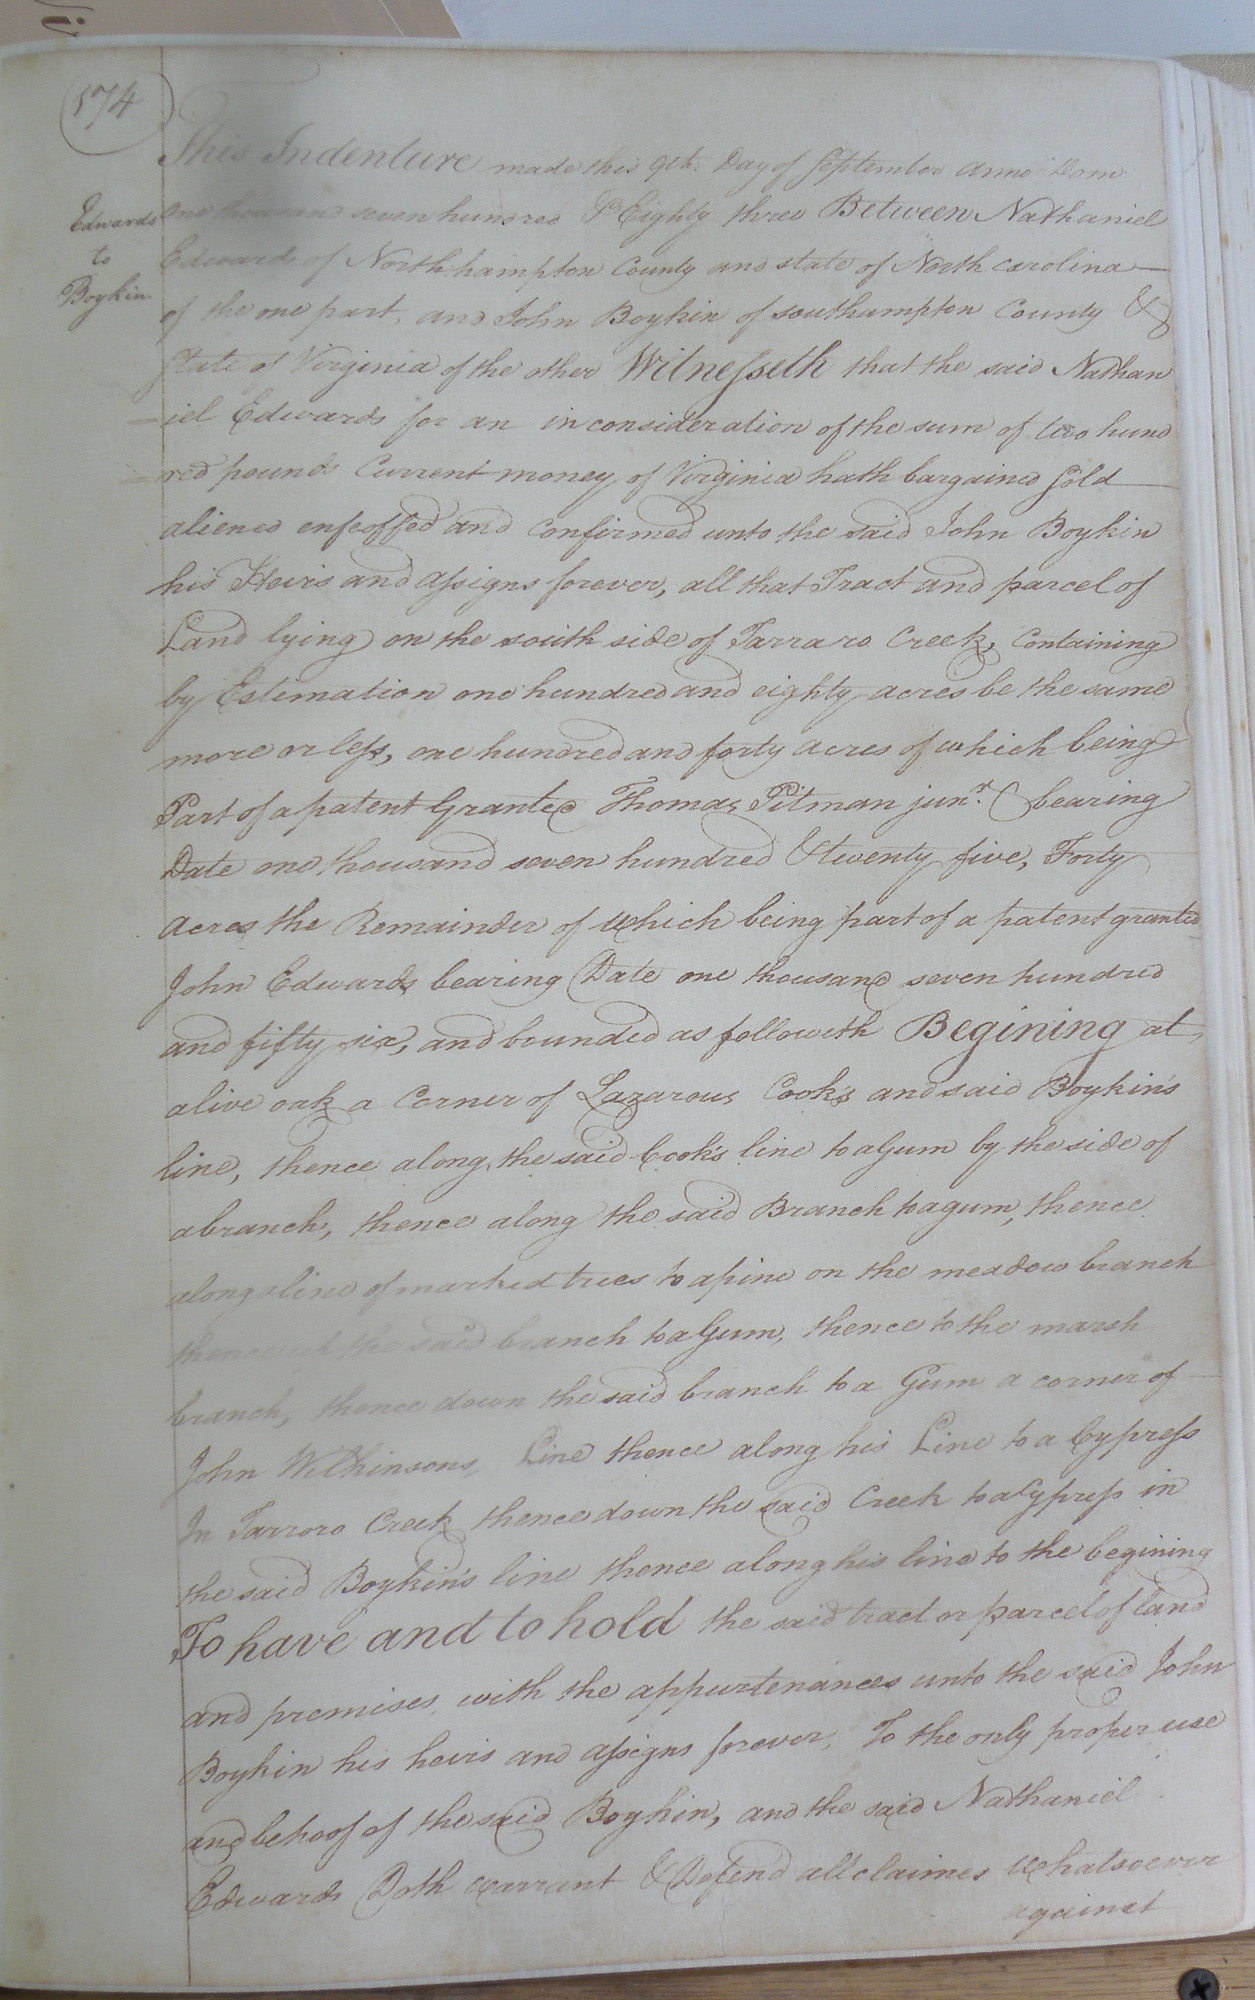 174
Edwards
to
Boykin
This Indenture made this 9th. Day of September anno Dom
one thousand seven hundred & Eighty three Between Nathaniel
Edwards of Northhampton County and state of North carolina
of the one part, and John Boykin of southampton County &
State of Virginia of the other Witnesseth that the said Nathan
-iel Edwards for an in consideration of the sum of two hund
-red pounds Current money of Virginia hath bargained Sold
aliened enfeoffed and Confirmed unto the said John Boykin
his Heirs and assigns forever, all that Tract and parcel of
Land lying on the south side of Tarraro Creek, Containing
by Estimation one hundred and eighty acres be the same
more or less, one hundred and forty acres of which being
Part of a patent Granted Thomas Pitman junr. bearing
Date one thousand seven hundred & twenty five, Forty
acres the Remainder of which being part of a patent granted
John Edwards bearing Date one thousand seven hundred
and fifty six, and bounded as followeth Begining at
alive oak a Corner of Lazarous Cook's and said Boykin's
line, thence along the said Cook's line to a Gum by the side of
a branch, thence along the said Branch to a gum, thence
along a line of marked trees to a pine on the meadow branch
thence up the said branch to a Gum, thence to the marsh
branch, thence down the said branch to a Gum a corner of
John Wilkinsons Line thence along his Line to a Cypress
In Tarroro Creek thence down the said Creek to a Cypress in
the said Boykin's line thence along his line to the begining
To have and to hold the said tract or parcel of land
and premises with the appurtenances unto the said John
Boykin his heirs and assigns forever, To the only proper use
and behoof of the said Boykin, and the said Nathaniel
Edwards Doth warrant & Defend all claimes whatsoever
against